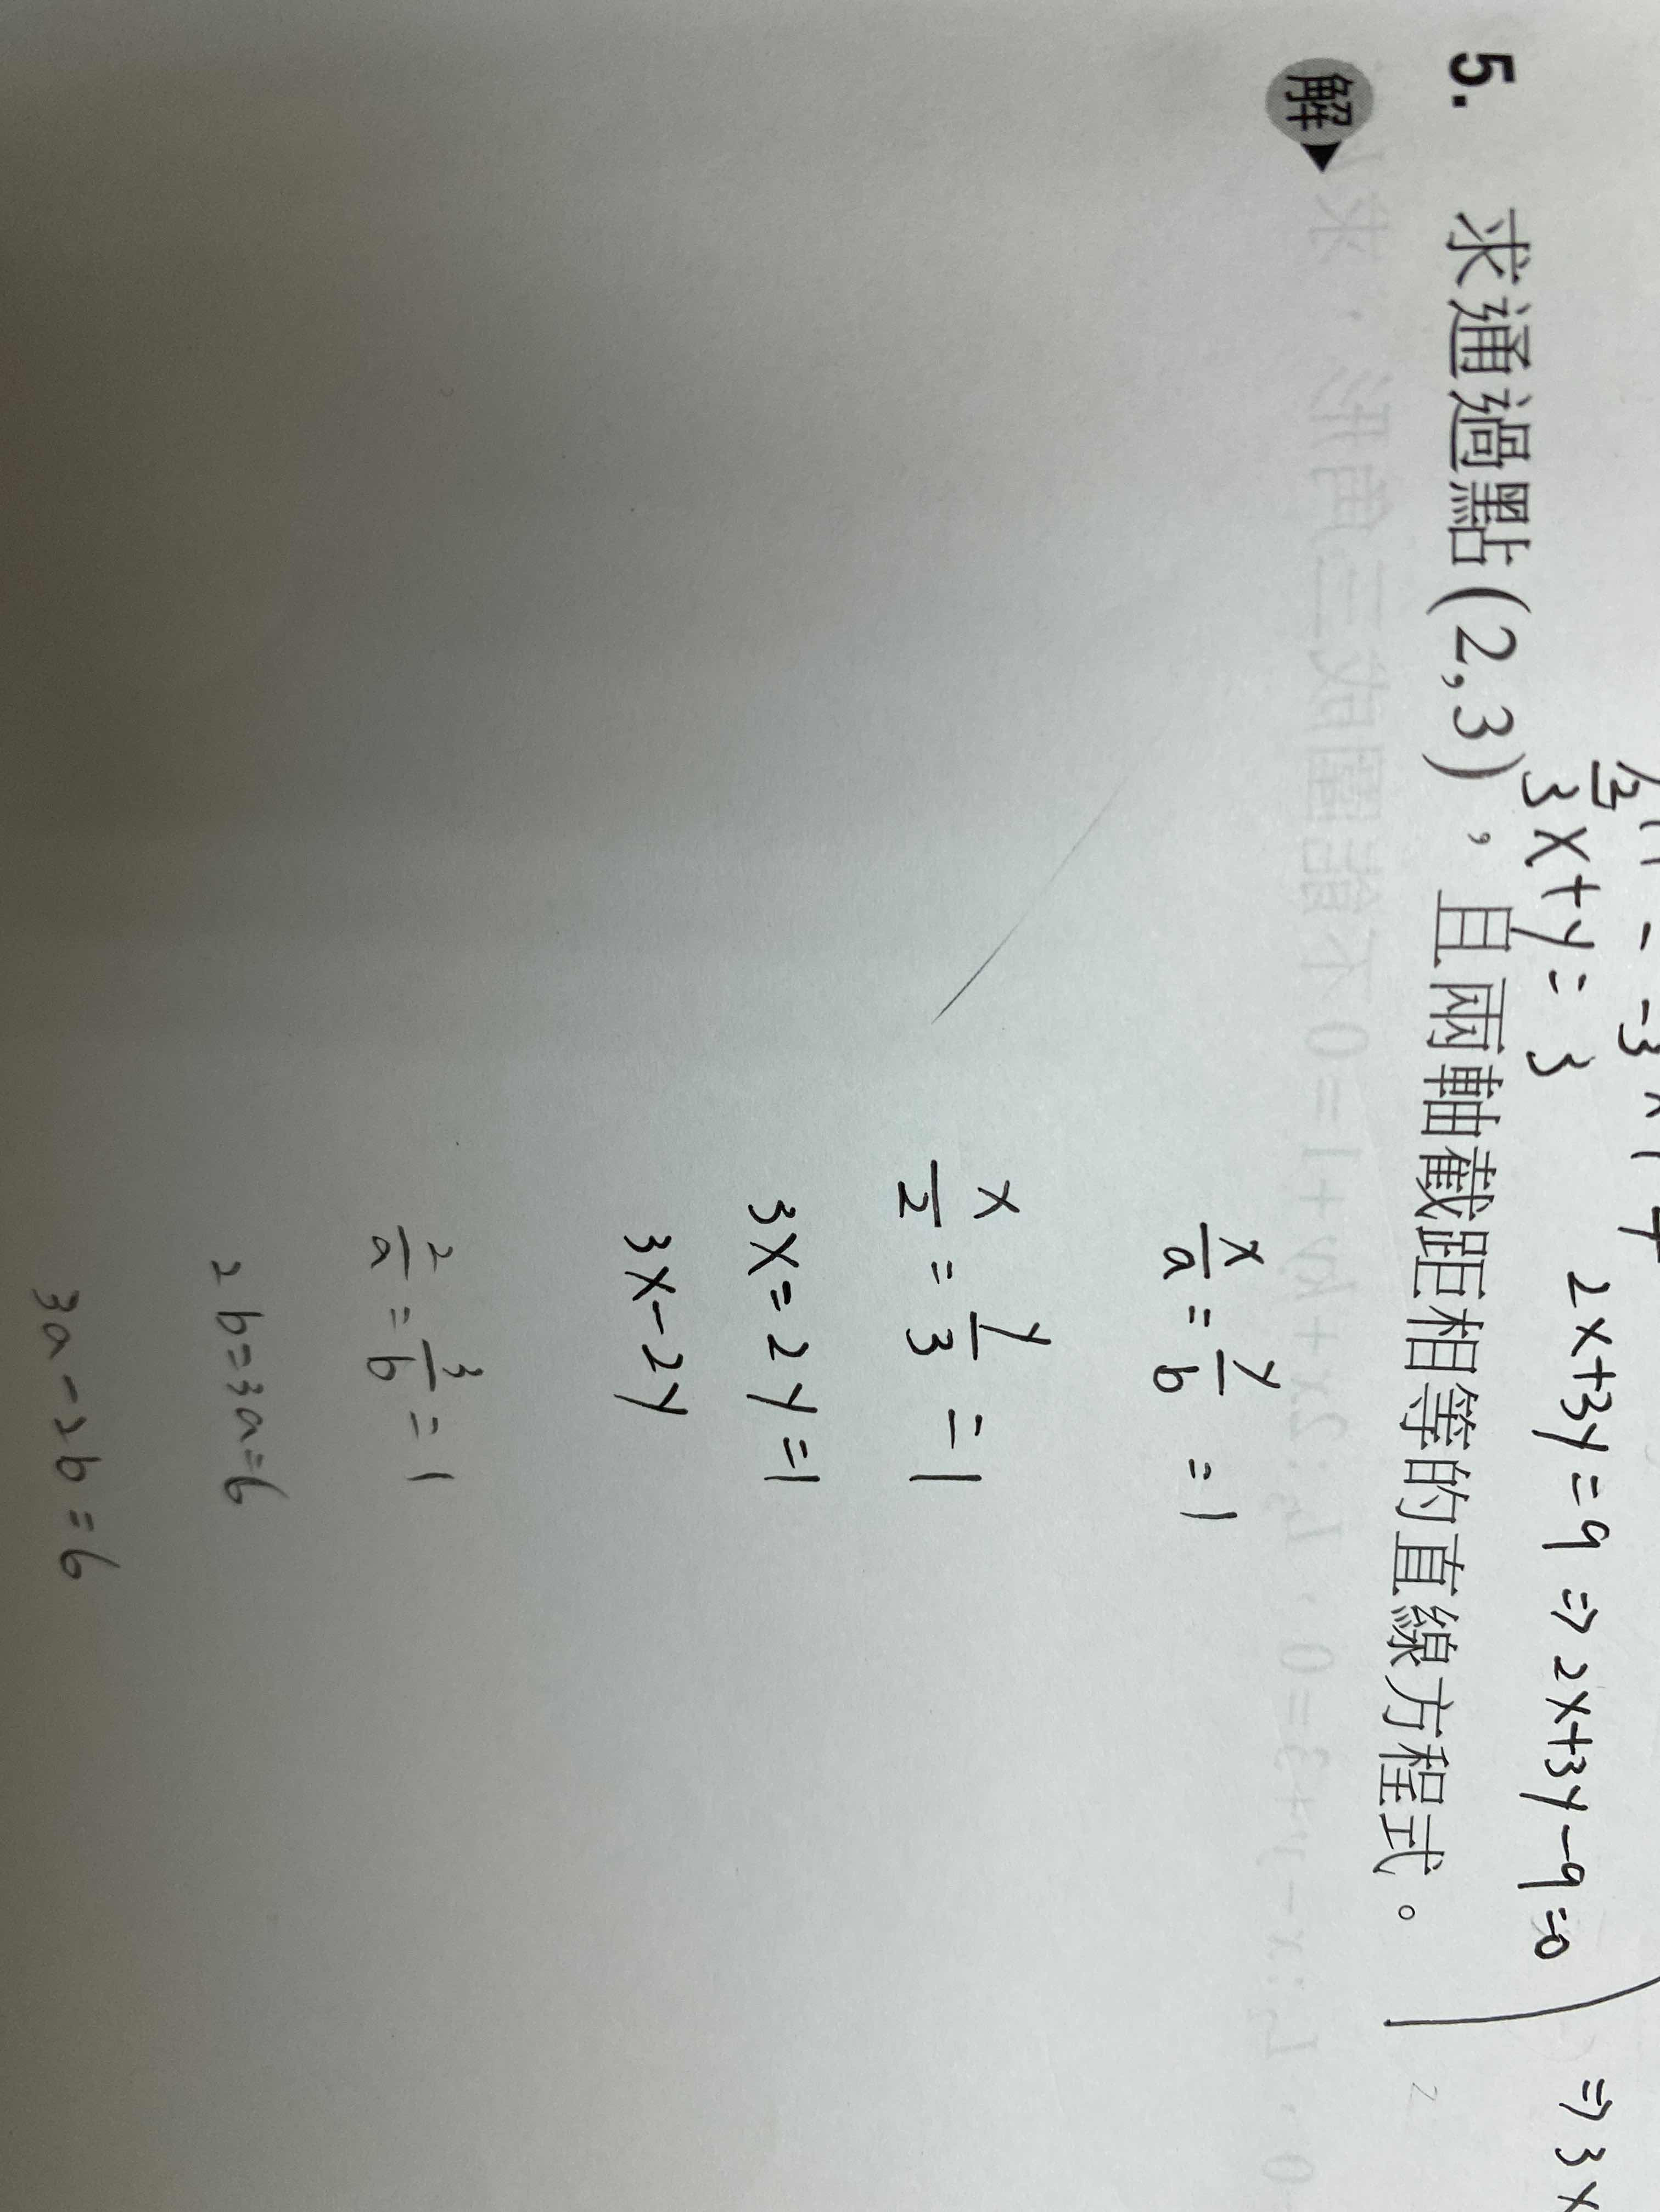 3x+y=3
2x+3y=9 ⇒ 2x+3y-9=0
⇒3x
5. 求通過點(2,3)，且兩軸截距相等的直線方程式。
解
x/a = y/b = 1
x/2 = y/3 = 1
3x=2y=1
3x-2y
2/a = 3/b = 1
2b=3a=6
3a-2b=6